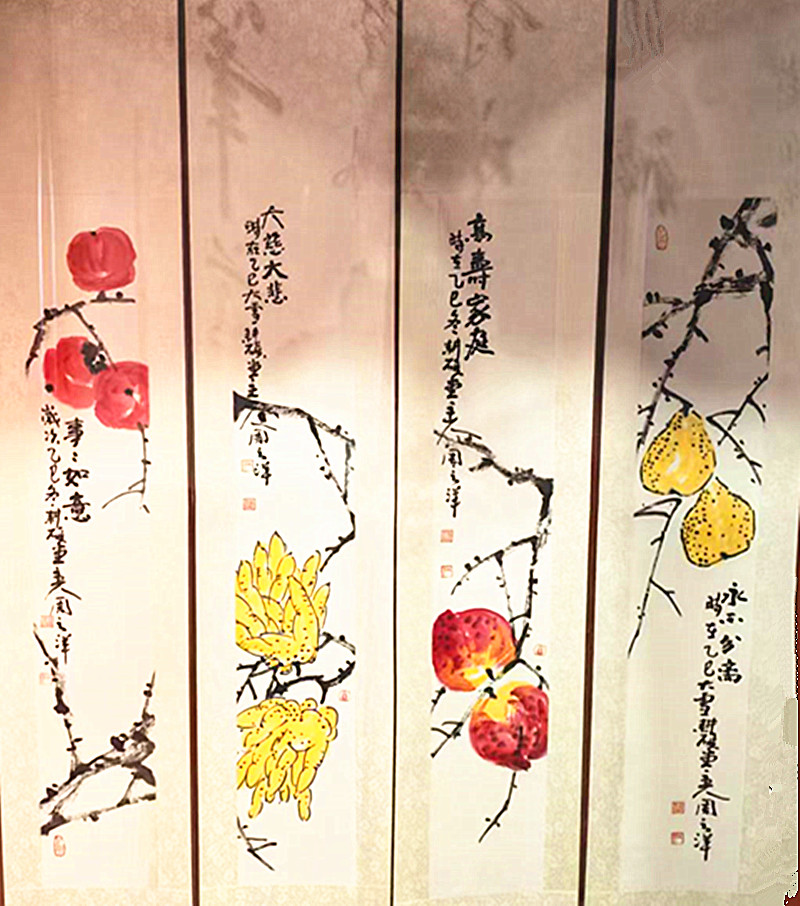 事〻如意
歲次乙巳冬耕砚堂主周之洋
大慈大悲
时在乙巳大雪耕砚堂主周之洋
高壽家庭
時在乙巳冬耕砚堂主周之洋
永不分离
時在乙巳大雪耕砚堂主周之洋